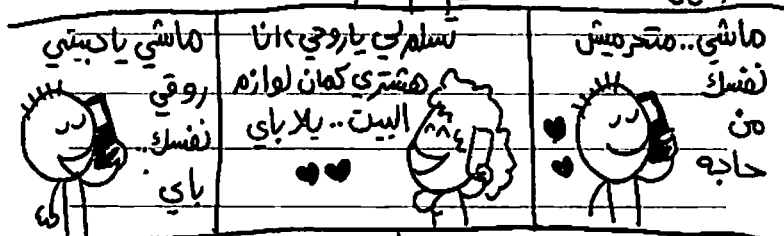 ماشي.. متحرميش
نفسك
من
حاجه
تسلملي ياروحي، انا
هشتري كمان لوازم
البيت.. يلا باي
ماشي ياحبيبتي
روقي
نفسك..
باي